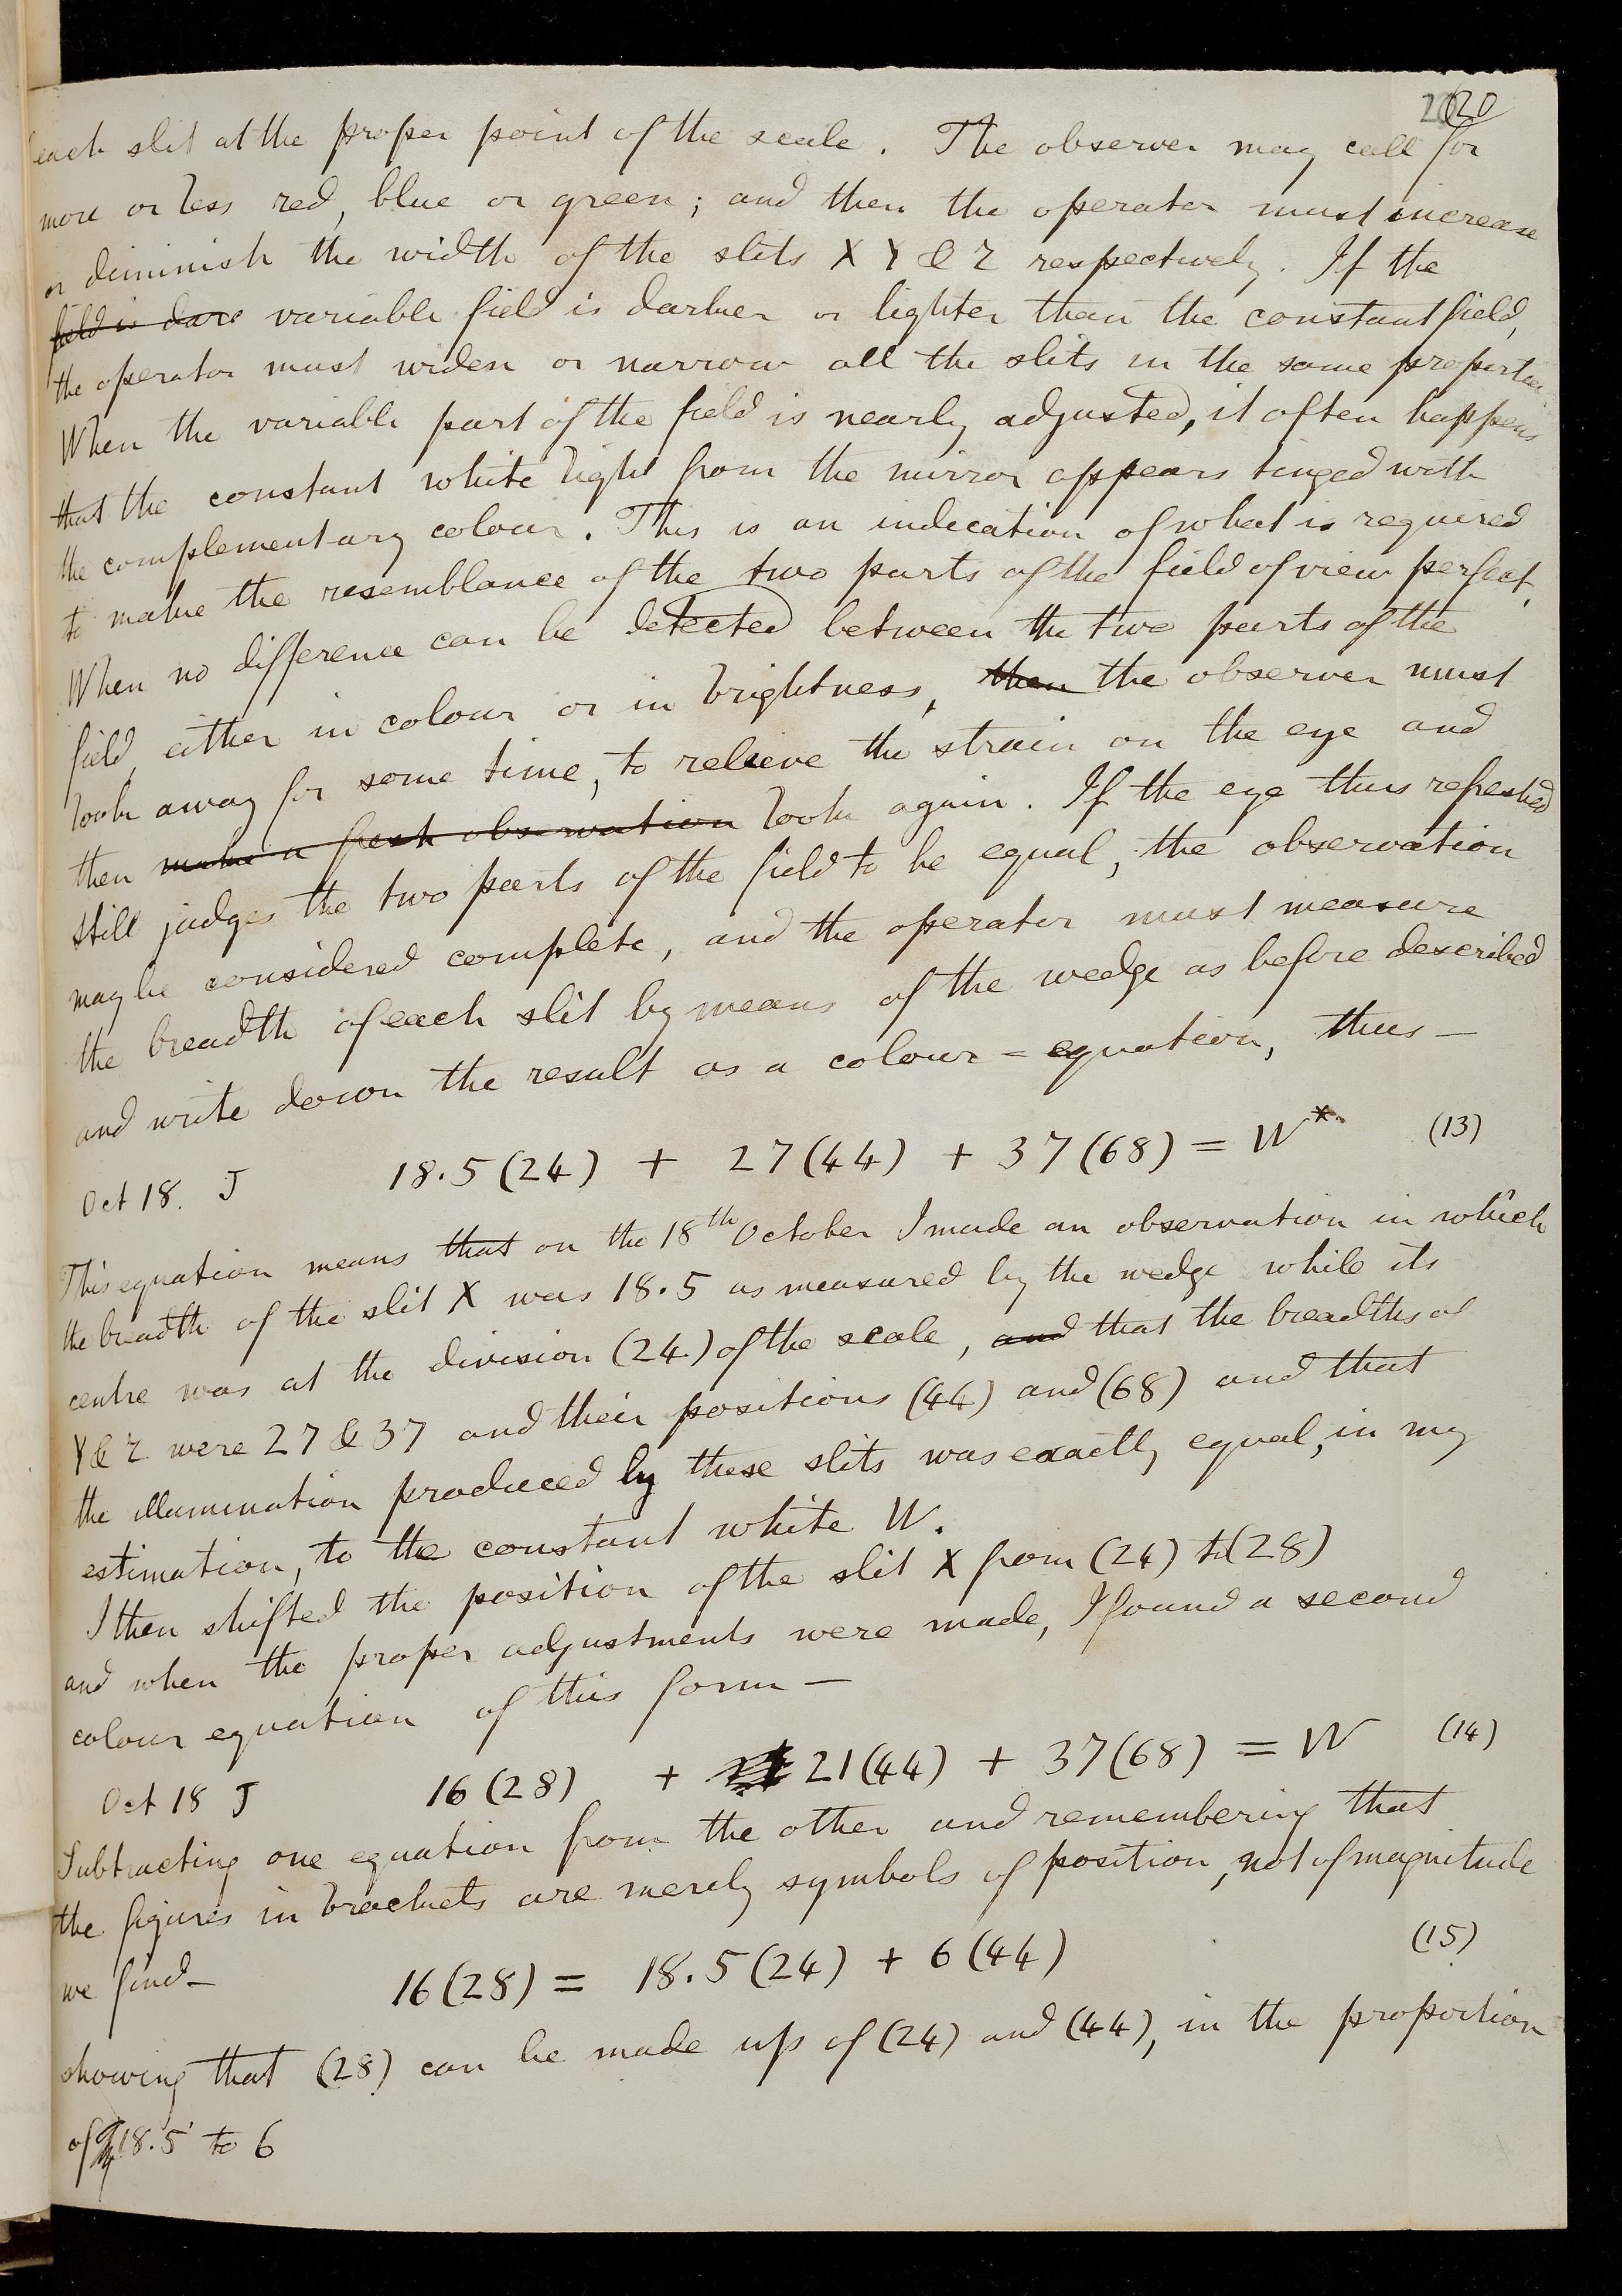 20 20
each slit at the proper point of the scale. The observer may call for
more or less red, blue or green; and then the operator must increase
or diminish the width of the slits X Y & Z respectively. If the
field is dare variable field is darker or lighter than the constant field,
the operator must widen or narrow all the slits in the same proportion
When the variable part of the field is nearly adjusted, it often happens
that the constant white light from the mirror appears tinged with
the complementary colour. This is an indication of what is required
to make the resemblance of the two parts of the field of view perfect.
When no difference can be detected between the two parts of the
field, either in colour or in brightness, then the observer must
look away for some time, to relieve the strain on the eye and
then make a fresh observation look again. If the eye thus refreshed
still judges the two parts of the field to be equal, the observation
may be considered complete, and the operator must measure
the breadth of each slit by means of the wedge as before described
and write down the result as a colour=equation, thus—
Oct 18. J 18.5(24) + 27(44) + 37(68) = W* (13)
This equation means that on the 18th October I made an observation in which
the breadth of the slit X was 18.5 as measured by the wedge while its
centre was at the division (24) of the scale, and that the breadths of
Y & Z were 27 & 37 and their positions (44) and (68) and that
the illumination produced by these slits was exactly equal, in my
estimation, to the constant white W.
I then shifted the position of the slit X from (24) to (28)
and when the proper adjustments were made, I found a second
colour equation of this form—
Oct 18 J 16(28) + 21(44) + 37(68) = W (14)
Subtracting one equation from the other and remembering that
the figures in brackets are merely symbols of position, not of magnitude
we find— 16(28) = 18.5(24) + 6(44) (15)
showing that (28) can be made up of (24) and (44), in the proportion
of 18.5 to 6